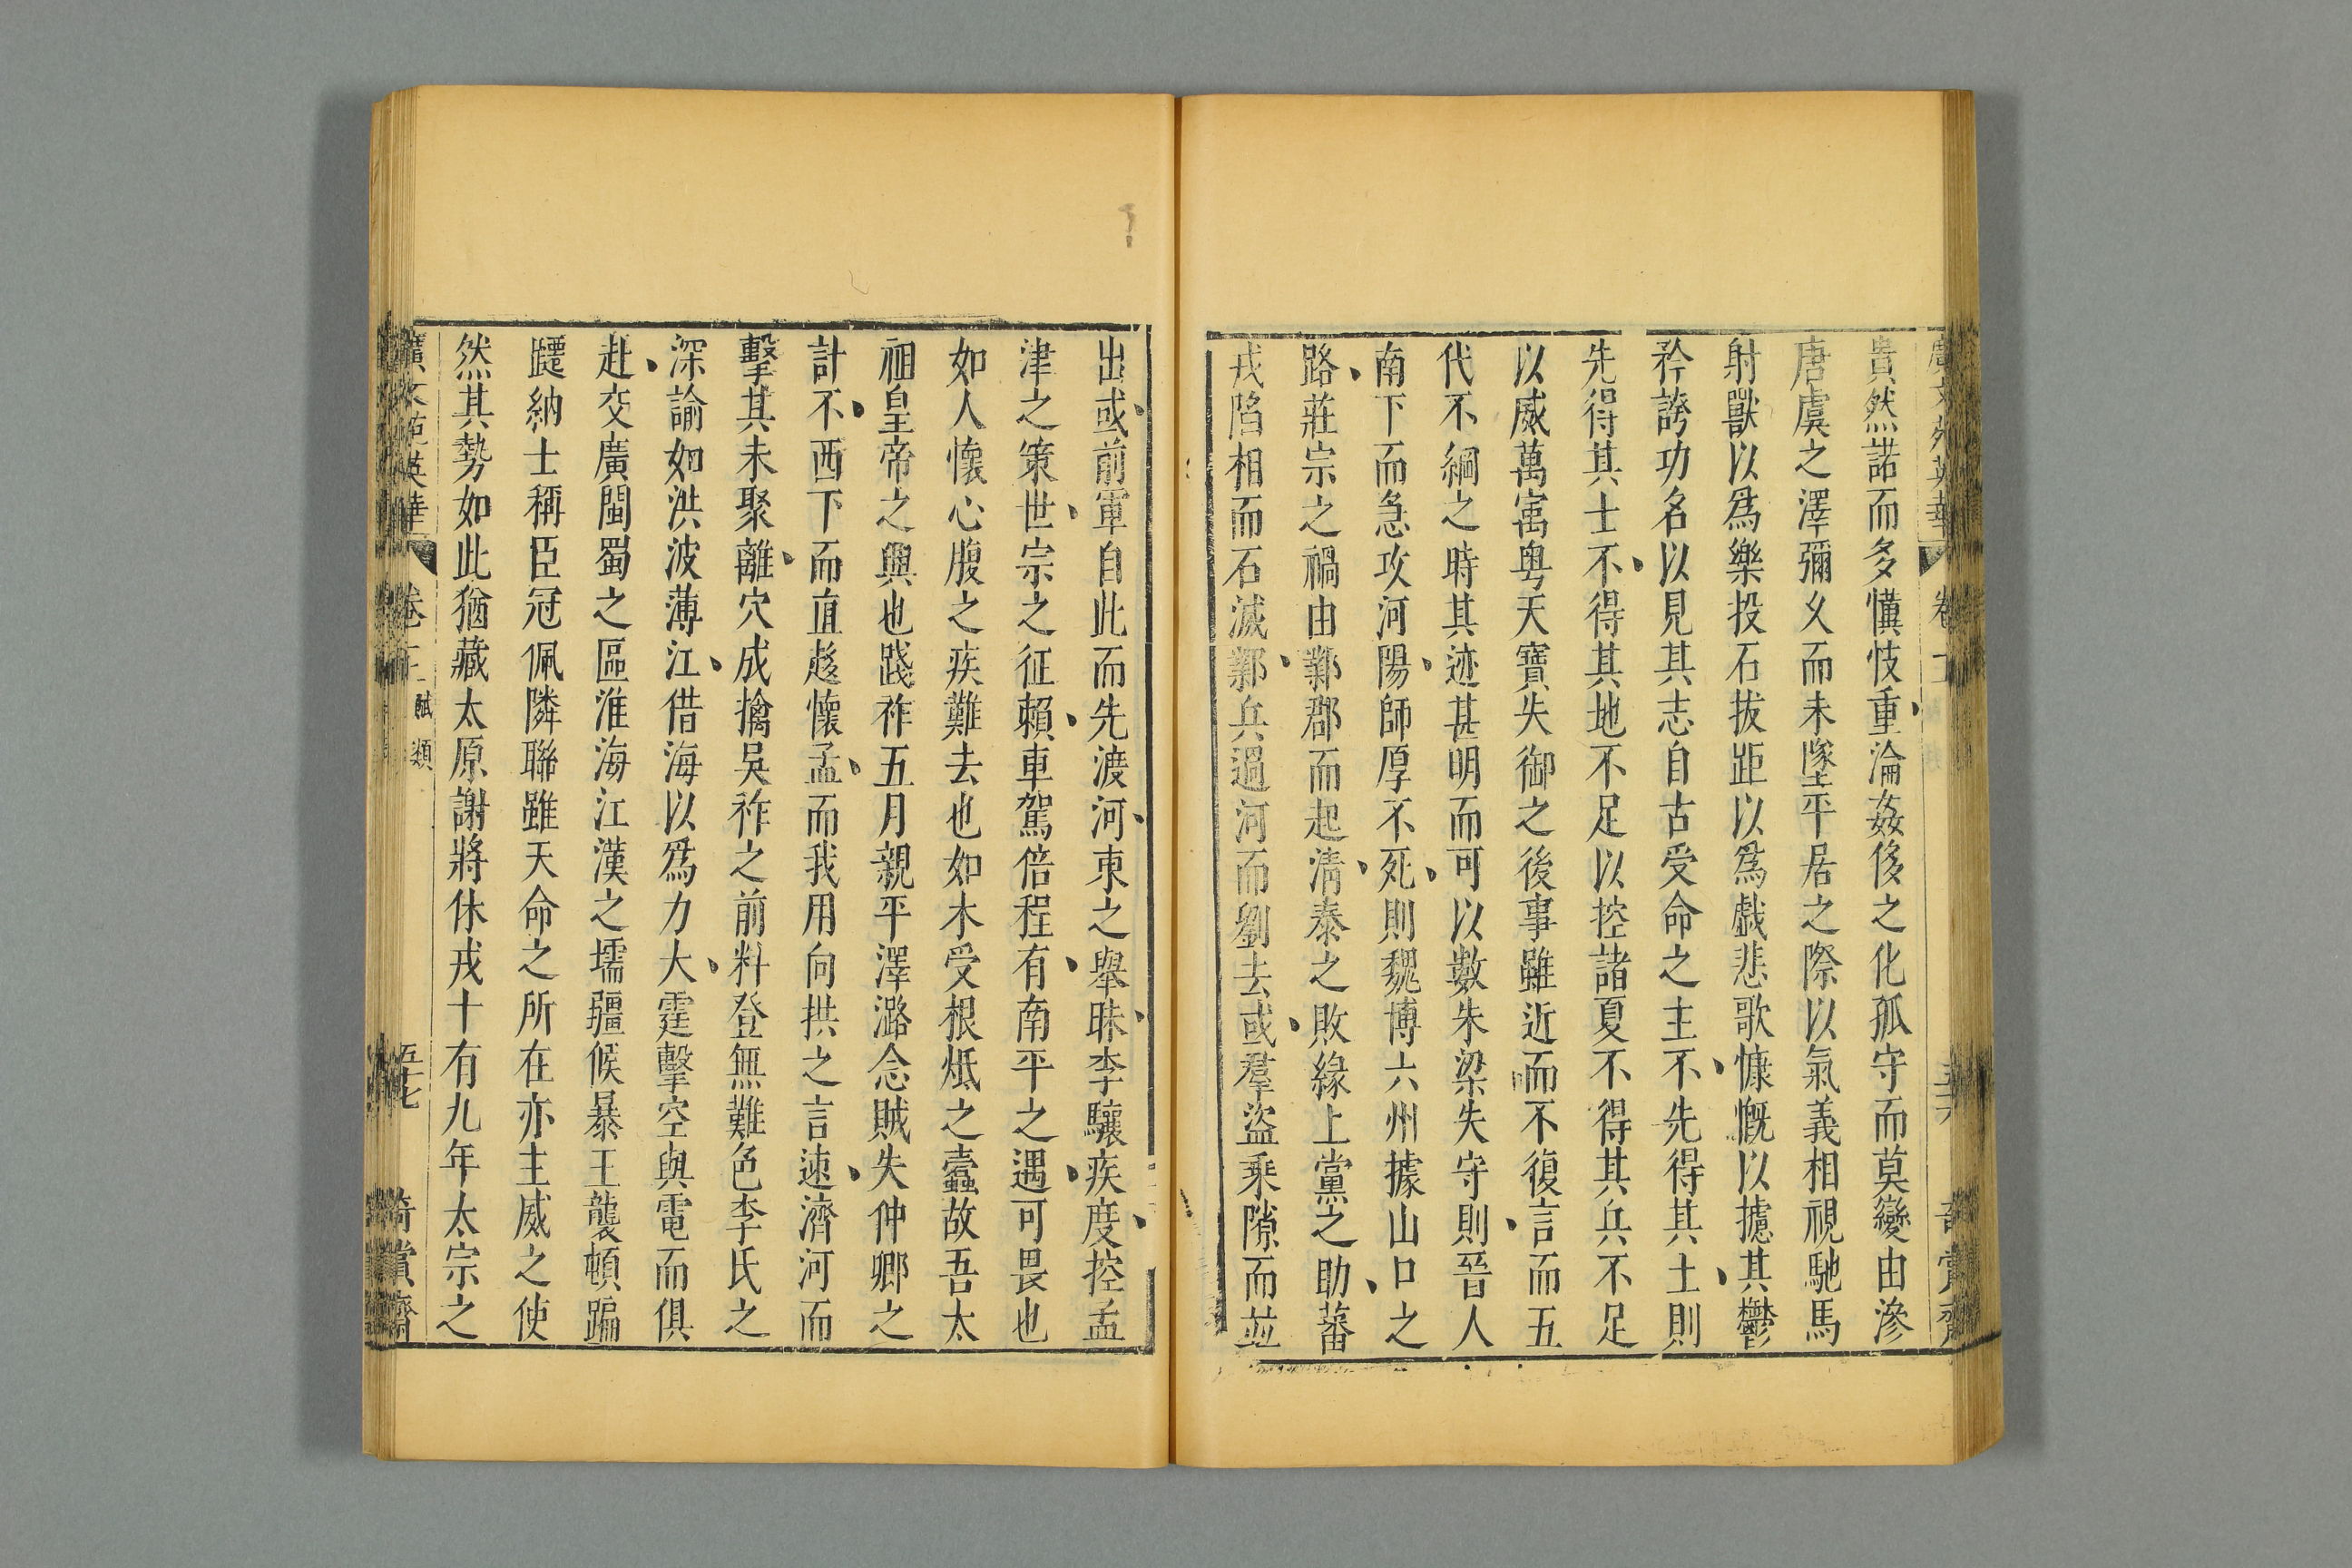 廣文苑英華 卷十 奇賞齋
貴然諾而多懻忮重淪姦侈之化孤守而莫變由滲
唐虞之澤彌乆而未墜平居之際以氣義相視馳馬
射獸以爲樂投石拔距以爲戲悲歌慷慨以攄其鬱
矜誇功名以見其志自古受命之主不先得其土則
先得其士不得其地不足以控諸夏不得其兵不足
以威萬寓粤天寶失御之後事雖近而不復言而五
代不綱之時其迹甚明而可以數朱梁失守則晉人
南下而急攻河陽師厚不死則魏博六州據山口之
路莊宗之禍由鄴郡而起淸泰之敗緣上黨之助蕃
戎陷相而石滅鄴兵過河而劉去或羣盜乘隙而並
出或前軍自此而先渡河東之舉昧李驤疾度控孟
津之策世宗之征賴車駕倍程有南平之遇可畏也
如人懷心腹之疾難去也如木受根柢之蠧故吾太
祖皇帝之興也踐祚五月親平澤潞念賊失仲卿之
計不西下而直趍懷孟而我用向拱之言速濟河而
擊其未聚離穴成擒吳祚之前料登無難色李氏之
深諭如洪波薄江借海以爲力大霆擊空與電而俱
赴交廣閩蜀之區淮海江漢之壖疆候暴王襲頓踰
躚納士稱臣冠佩隣聯雖天命之所在亦主威之使
然其勢如此猶藏太原謝將休戎十有九年太宗之
廣文苑英華 卷十 賦類 五十七 奇賞齋